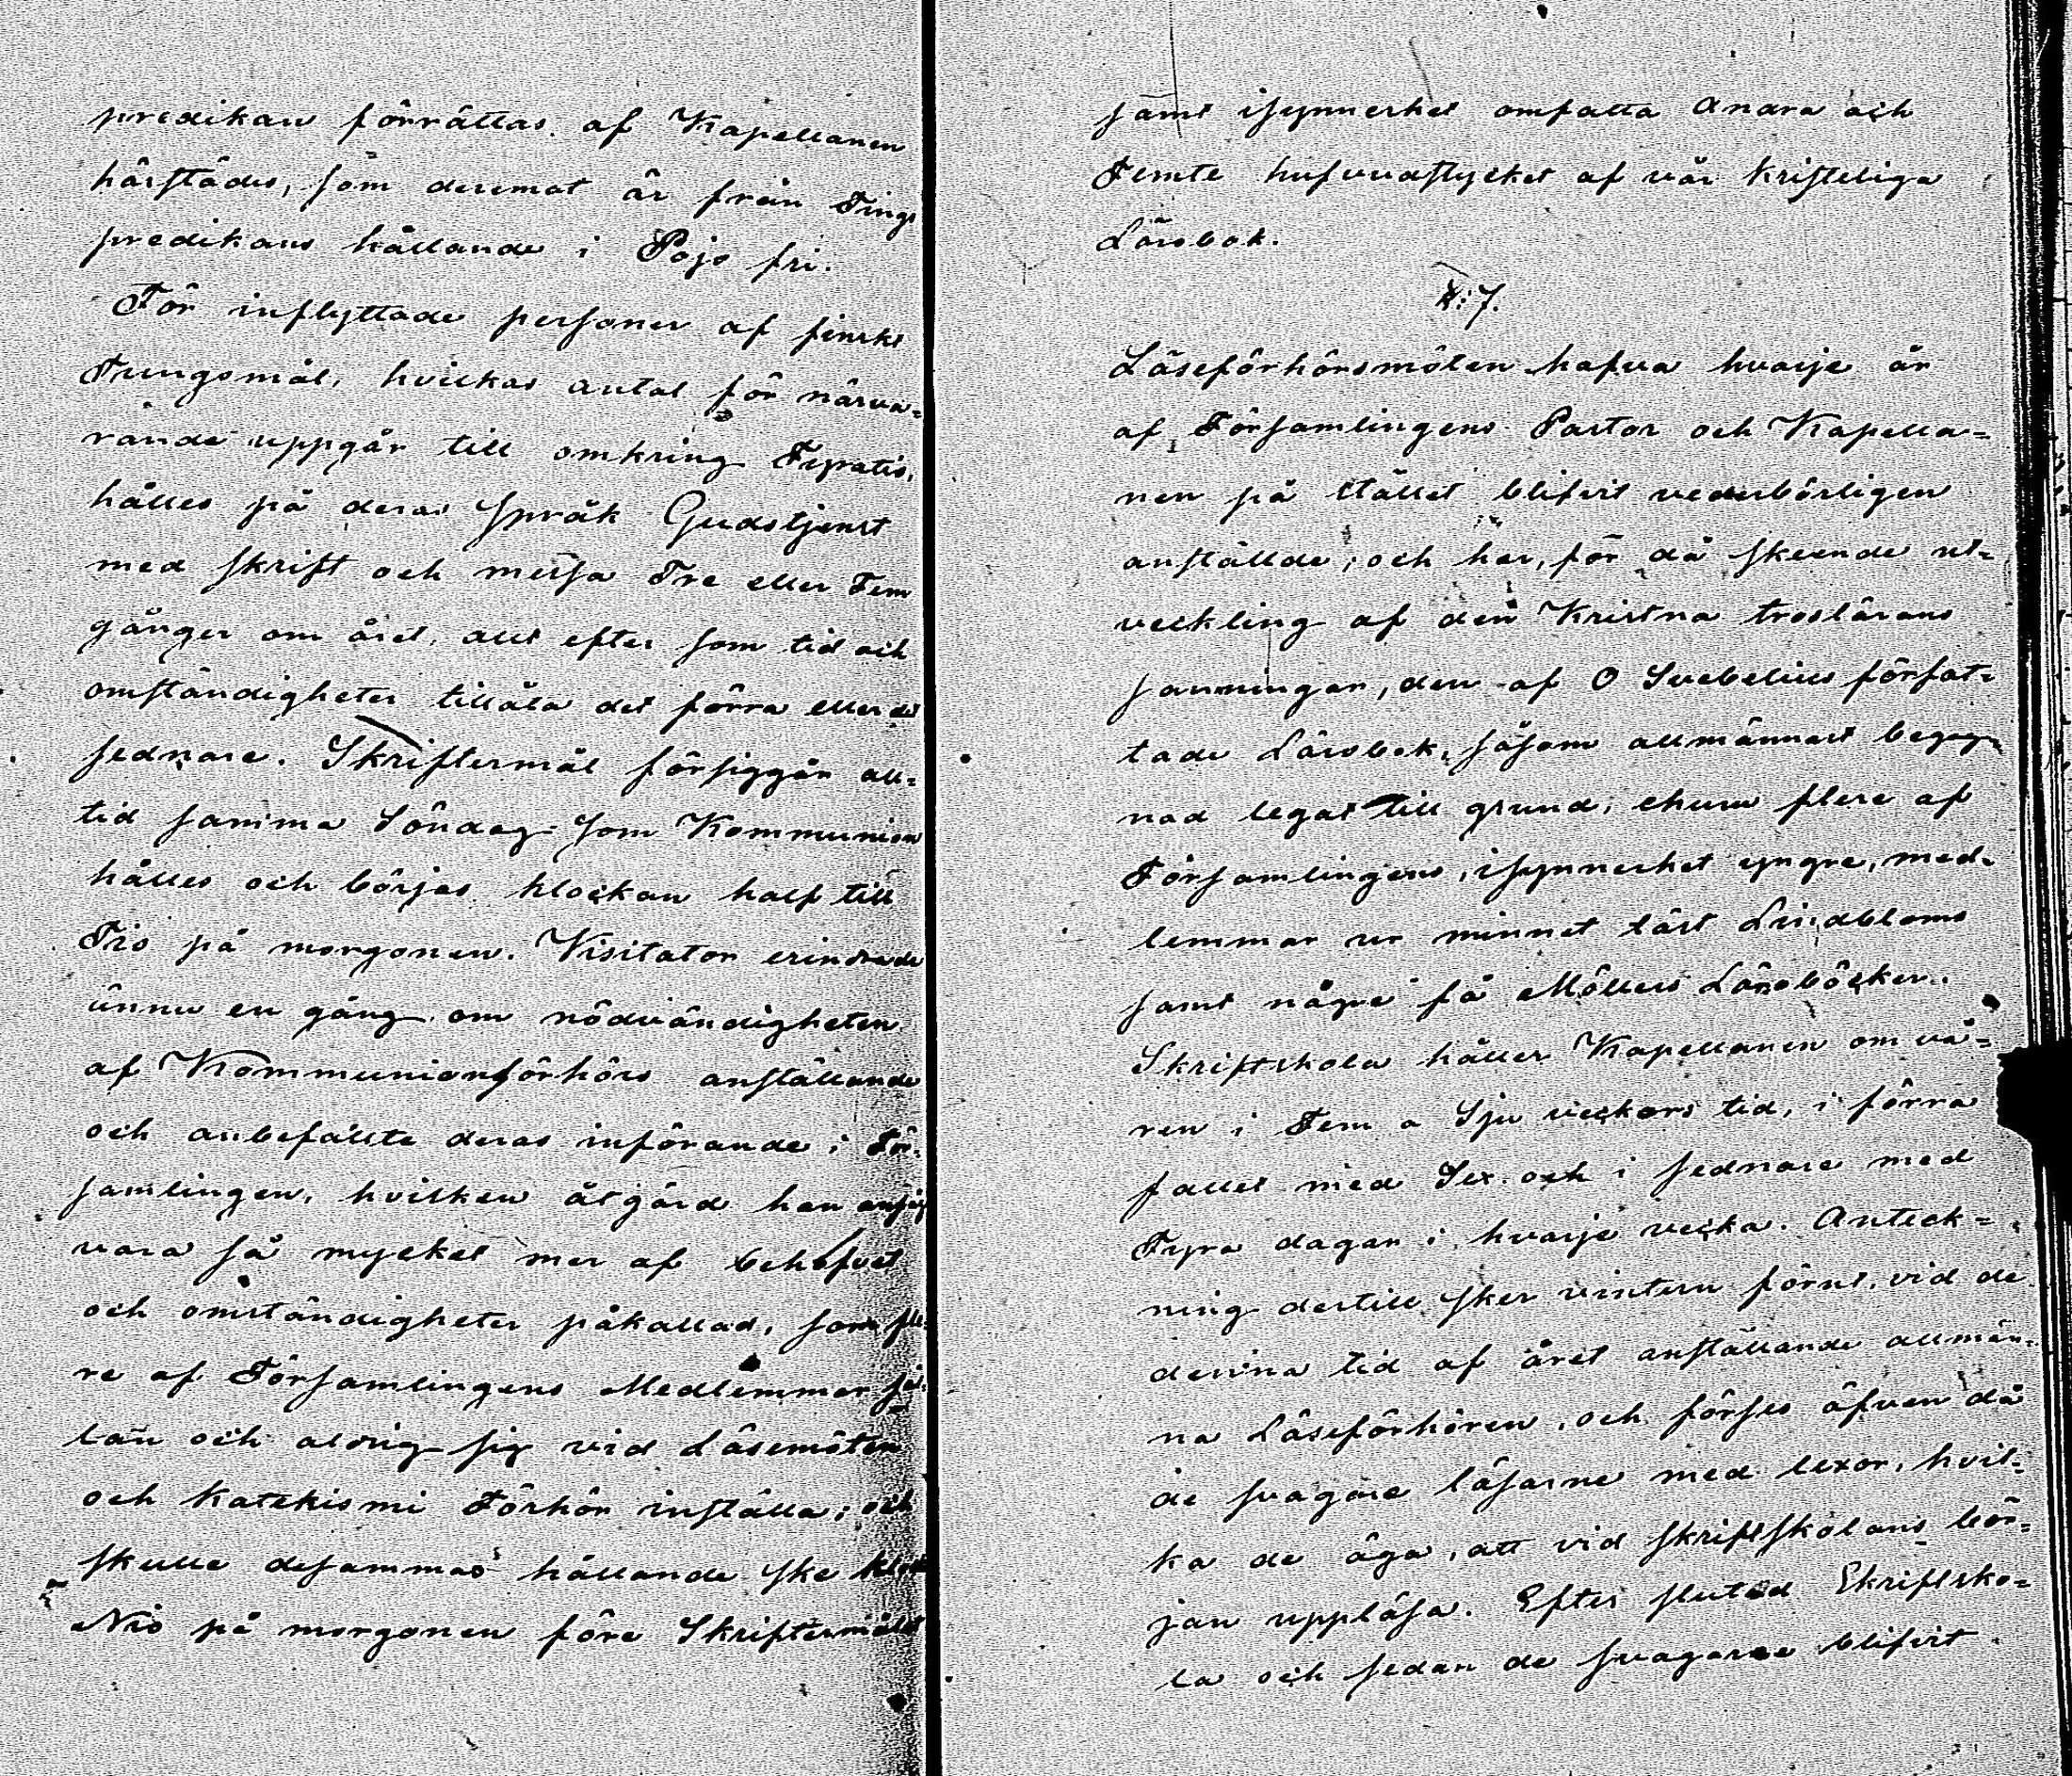 predikan förrättas af Kapellanen
härstädes, som deremot är från Tings
predikans hållande i Pojo fri.
För inflyttade personer af finskt
Tungomål, hvilkas antal för närva-
rande uppgår till omkring Fyratio,
hålles på deras Språk Gudstjenst
med skrift och messa Tre eller Fem
gånger om året, allt efter som tid och
omständigheter tillåta det förra eller det
sednare. Skriftermål försiggår all-
tid samma Söndag som Kommunion
hålles och börjas klockan half till
Tio på morgonen. Visitator erindrade
ännu en gång om nödvändigheten
af Kommunionförhörs anställande
och anbefallte deras införande i För-
samlingen, hvilken åtgärd han ansåg
vara så mycket mer af behofvet
och omständigheter påkallad, som fle-
re af Församlingens Medlemmar säl-
lan och aldrig sig vid Läsemöten
och Katekismi Förhör inställa; och
skulle desammas hållande ske klock
Nio på morgonen före Skriftermålet
samt isynnerhet omfatta Andra och
Femte hufvudstycket af vår kristeliga
Lärobok.
§:7.
Läseförhörsmöten hafva hvarje år
af Församlingens Pastor och Kapella-
nen på stället blifvit vederbörligen
anställde, och har, för då skeende ut-
veckling af den Kristna troslärans
sanningar, den af O Svebelius författ-
tade Lärobok, såsom allmännast begag-
nad legat till grund, ehuru flere af
Församlingens, isynnerhet yngre, med-
lemmar ur minnet läst Lindbloms
samt några få Möllers Läroböcker.
Skriftskola håller Kapellanen om vå-
ren i Fem a Sju veckors tid, i förra
fallet med Sex och i sednare med
Fyra dagar i hvarje vecka. Anteck-
ning dertill sker vintern förut, vid de
denna tid af året anställande allmän-
na Läseförhören, och förses äfven då
de svagare läsarne med lexor, hvil-
ka de äga, att vid skriftskolans bör-
jan uppläsa. Efter slutad Skriftsko-
la och sedan de svagaree blifvit